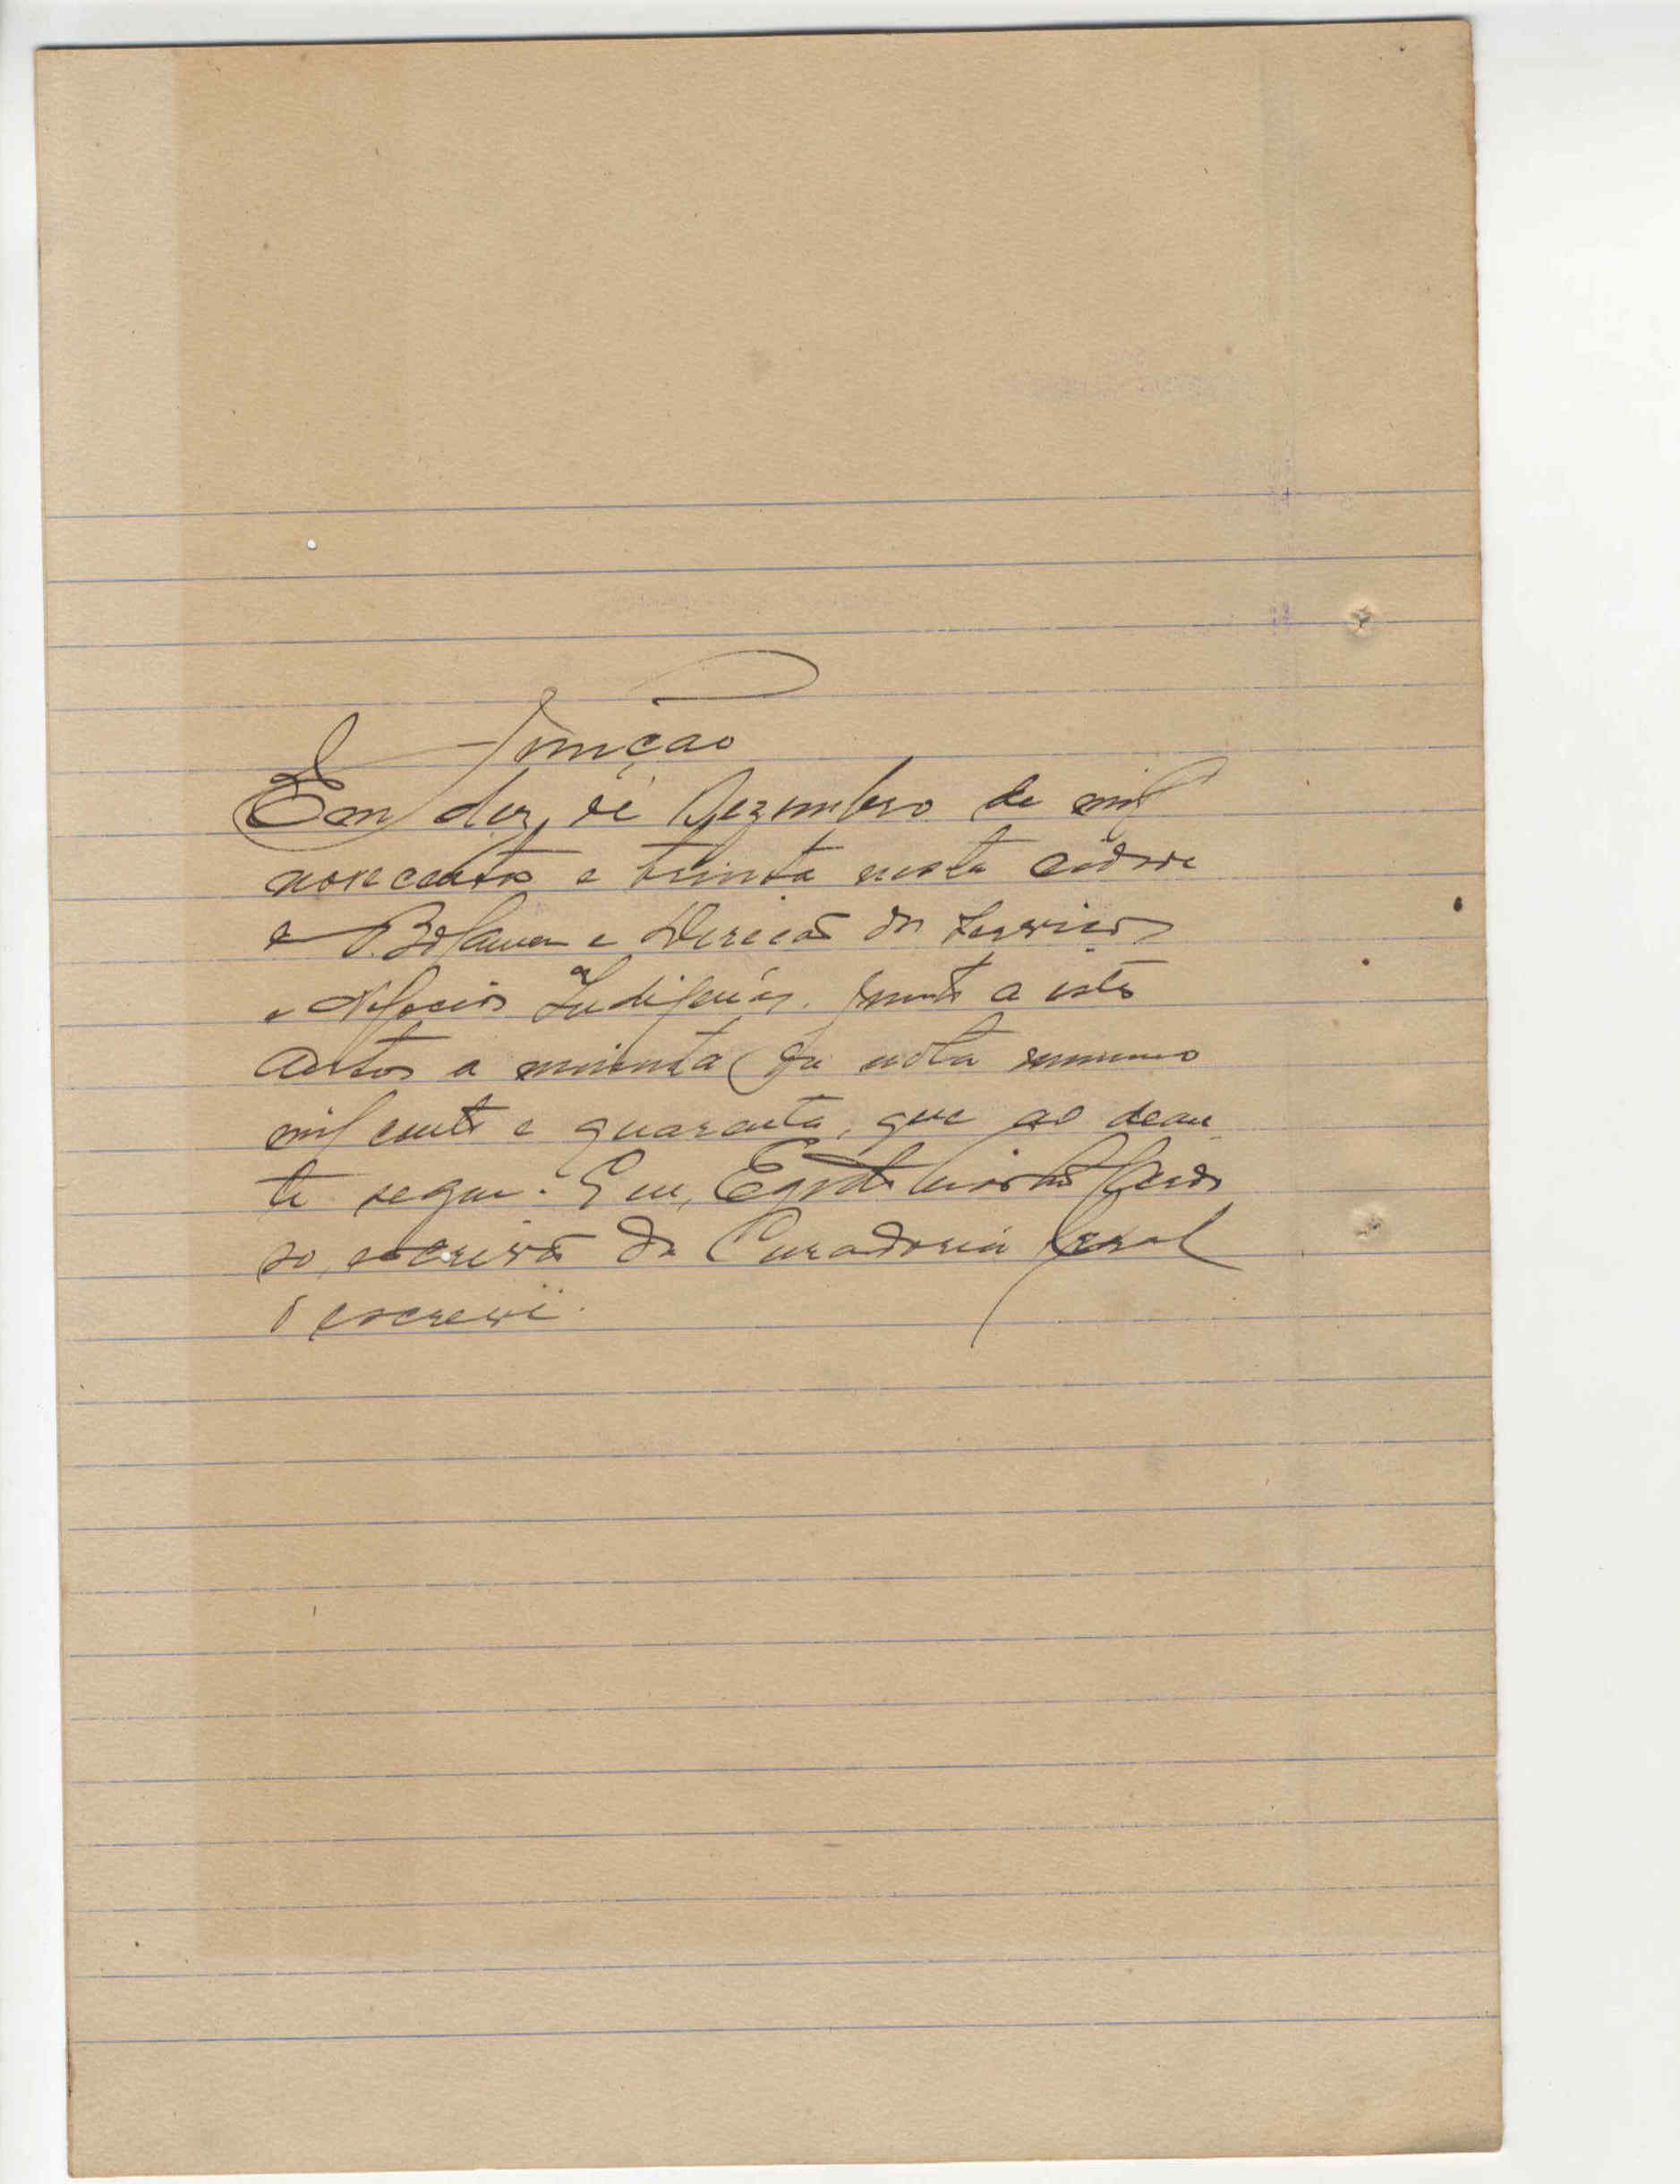 Junção
Em dez de Dezembro de mil
novecentos e trinta nesta cidade
de Bolama e Direcão dos Serviços
e Negocios Indigenas. Junto a estes
autos a minuta da nota numero
mil cento e quarenta, que ao dean
te segue. Eu, Cardo
so, escrivão da Curadoria Geral
o escrevi.